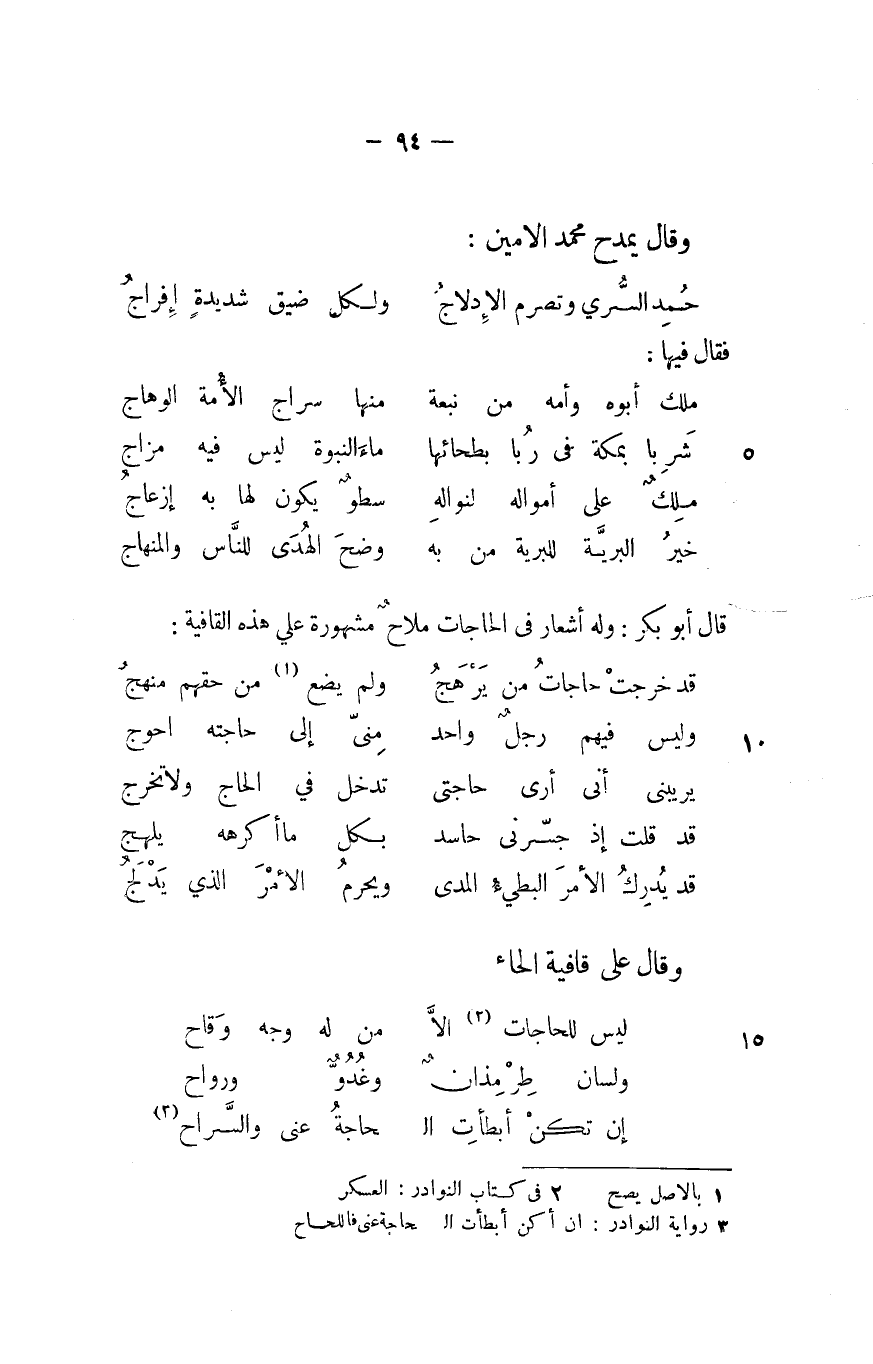 — ٩٤ —
وقال يمدح محمد الامين :
حُمِد السُّري وتصرم الإِدلاجُ ولكلِ ضيق شديدةٍ إِفراجُ
فقال فيها :
ملك أبوه وأمه من نبعة منها سراج الأُمة الوهاج
٥ شَرِبا بمكة فى رُبا بطحائها ماءَ النبوة ليس فيه مزاج
مِلكٌ على أمواله لنوالهِ سطوٌ يكون لها به إزعاجُ
خيرُ البريَّة للبرية من به وضحَ الهُدَى للنَّاس والمنهاج
قال أبو بكر : وله أشعار فى الحاجات ملاحٌ مشهورة علي هذه القافية :
قد خرجتْ حاجاتُ من يَرْهَجُ ولم يضع (١) من حقهم منهجُ
١٠ وليس فيهم رجلٌ واحد مِنىّ إلى حاجته احوج
يريبنى أنى أرى حاجتى تدخل في الحاج ولاتخرج
قد قلت إذ جسّرنى حاسد بكل ماأكرهه يلهج
قد يُدرِكُ الأمرَ البطيء المدى ويحرمُ الأمْرَ الذي يَدْلَجُ
وقال على قافية الحاء
١٥ ليس للحاجات (٢) الاَّ من له وجه وَقاح
ولسان طِرْمِذانٌ وغُدُوٌّ ورواح
إن تكنْ أبطأتِ الـ ـحاجةُ عنى والسَّراح (٣)
١ بالاصل يصح ٢ فى كتاب النوادر : العسكر
٣ رواية النوادر : ان أكن أبطأت الـ ـحاجة عنى فاللحاح